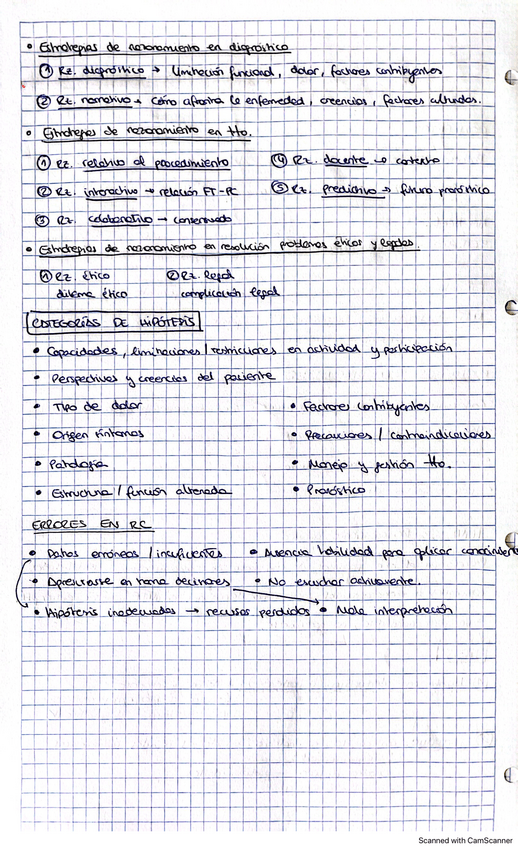 • Estrategias de razonamiento en diagnóstico
① Rz. diagnóstico → limitación funcional, dolor, factores contribuyentes
② Rz. narrativo → cómo afronta la enfermedad, creencias, factores culturales.
• Estrategias de razonamiento en tto.
① Rz. relativo al procedimiento ④ Rz. docente → contexto
② Rz. interactivo → relación FT-PC ⑤ Rz. predictivo → futuro pronóstico
③ Rz. colaborativo → consensuado
• Estrategias de razonamiento en resolución problemas éticos y legales.
① Rz. ético ② Rz. legal
dilema ético complicación legal
CATEGORÍAS DE HIPÓTESIS
• Capacidades, limitaciones / restricciones en actividad y participación
• Perspectivas y creencias del paciente
• Tipo de dolor • Factores contribuyentes
• Origen síntomas • Precauciones / contraindicaciones
• Patología • Manejo y gestión tto.
• Estructura / función alterada • Pronóstico
ERRORES EN RC
• Datos erróneos / insuficientes • Ausencia habilidad para aplicar
• Apresurarse en toma decisiones • No escuchar activamente.
• Hipótesis inadecuadas → recursos perdidos • Mala interpretación
Scanned with CamScanner